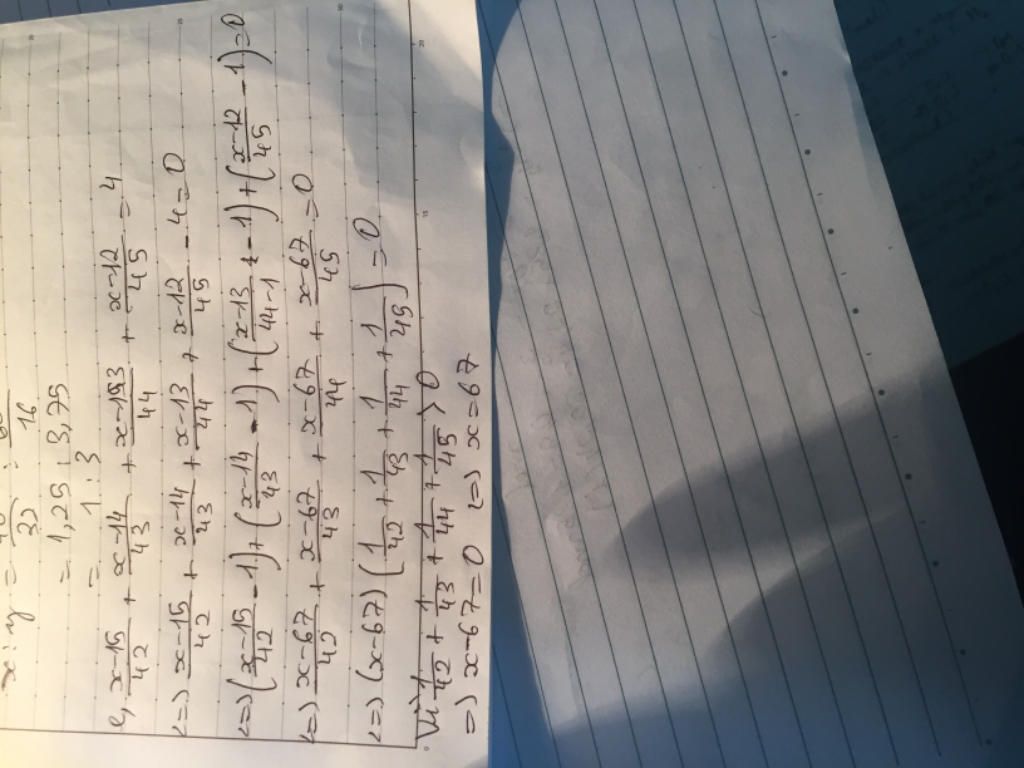 x : y =
= 1,25 : 3,75
= 1 : 3
e, x-15/42 + x-14/43 + x-13/44 + x-12/45 = 4
<=> x-15/42 + x-14/43 + x-13/44 + x-12/45 - 4 = 0
<=> (x-15/42 - 1) + (x-14/43 - 1) + (x-13/44-1 - 1) + (x-12/45 - 1) = 0
<=> x-67/42 + x-67/43 + x-67/44 + x-67/45 = 0
<=> (x-67) (1/42 + 1/43 + 1/44 + 1/45) = 0
Vì 1/42 + 1/43 + 1/44 + 1/45 > 0
=> x-67=0 <=> x=67